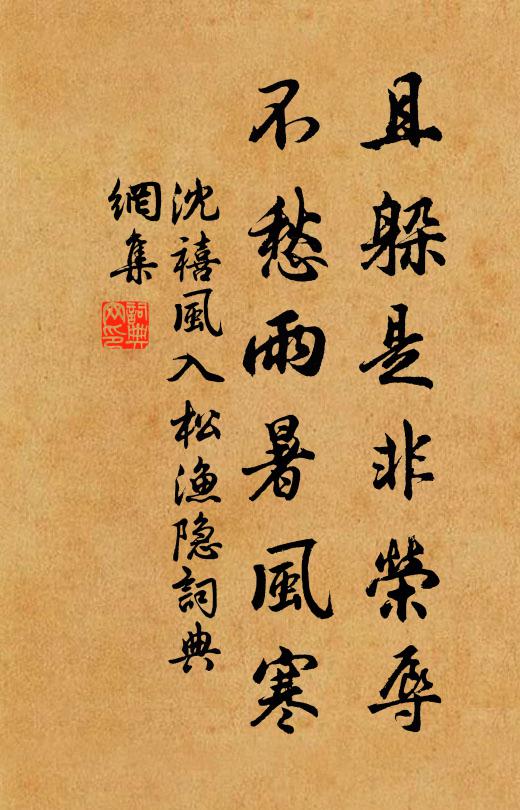 且躲是非榮辱
不愁雨暑風寒
沈禧風入松漁隐詞典
網集
詞典
文印